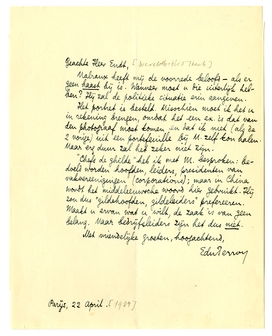 Geachte Heer Endt,
Malraux heeft mij de voorrede beloofd – als er
geen haast bij is. Wanneer moet u die uiterlijk heb-
ben? Hij zal de politieke situatie erin aangeven.
Het portret is besteld. Misschien moet ik het u
in rekening brengen, omdat het een ex. is dat van
den photograaf moet komen, en dat ik niet (als ze
't vorige) uit een portefeuille bij M. zelf kon halen.
Maar erg duur zal het zeker niet zijn.
"Chefs de ghilde" heb ik met M. besproken: be-
doeld worden hoofden, leiders, presidenten van
vakvereenigingen (corporations); maar in China
wordt het middeleeuwsche woord hier gebruikt. Hij
zou dus "gildehoofden, gildeleiders" prefereeren.
Maakt u ervan wat u wilt, de zaak is van geen
belang. Maar bedrijfsleiders zijn het dus niet.
Met vriendelijke groeten, hoogachtend,
EduPerron
Parijs, 22 April. [1934]